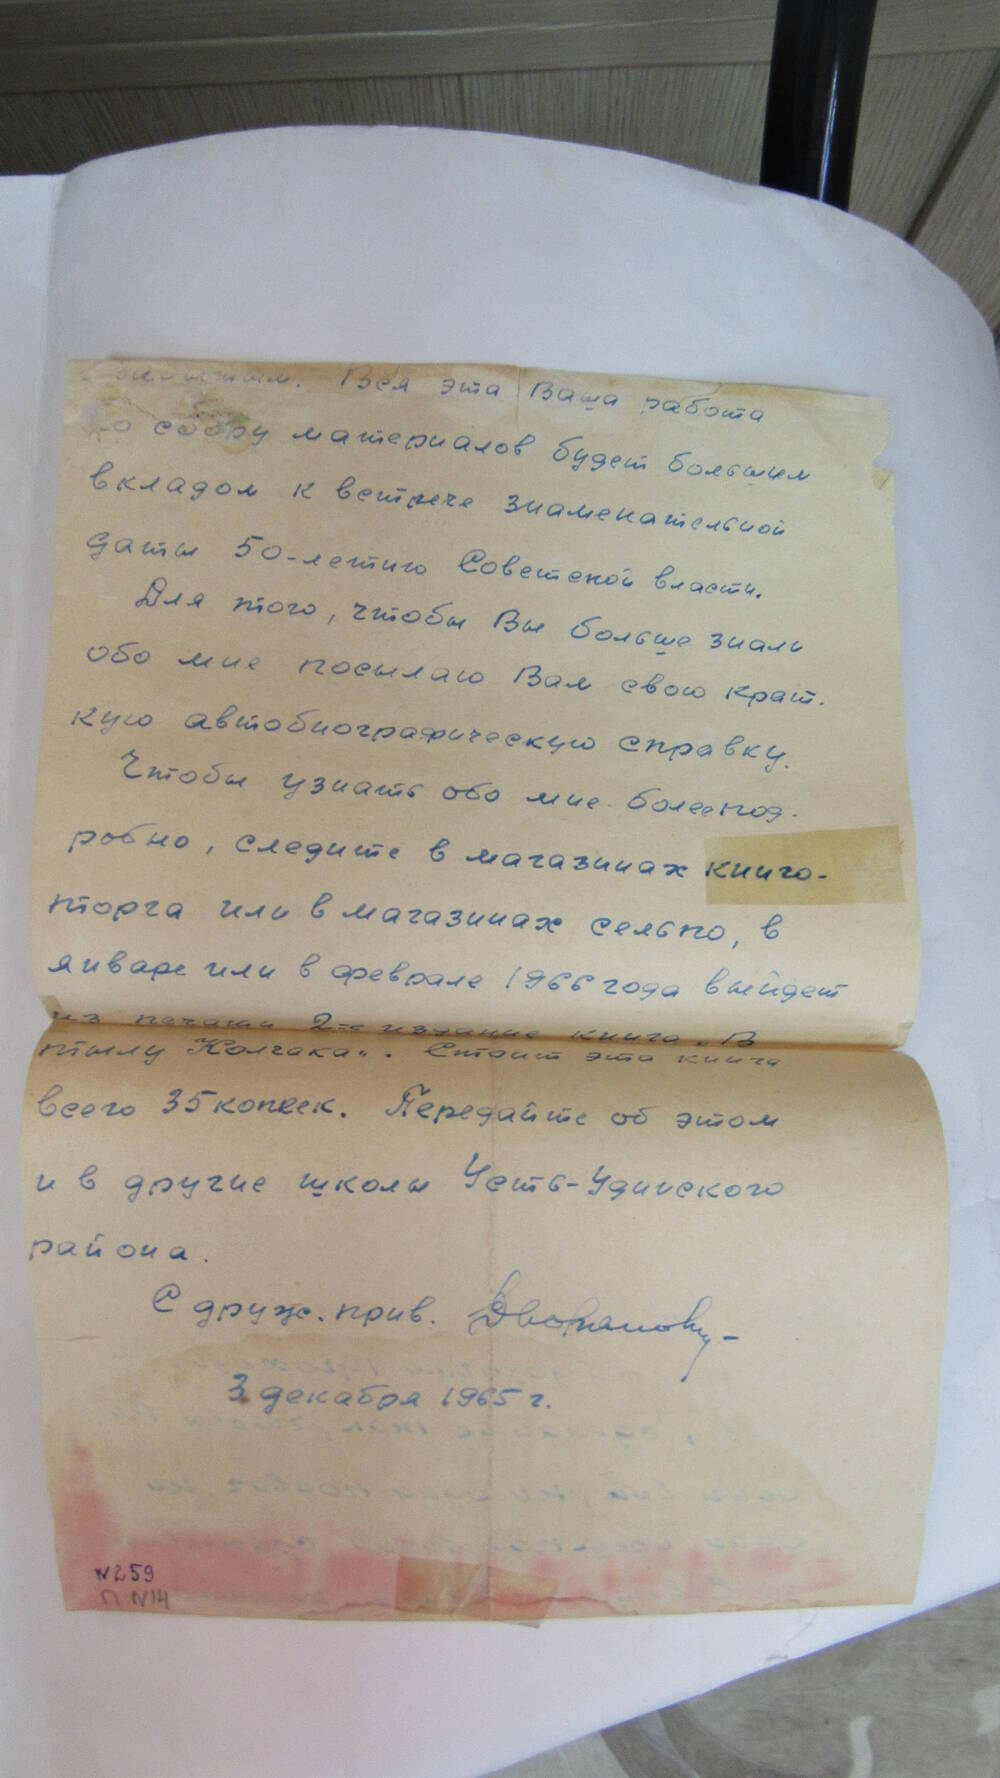 Вся эта Ваша работа
по сбору материалов будет большим
вкладом к встрече знаменательной
даты 50-летию Советской власти.
Для того, чтобы Вы больше знали
обо мне посылаю Вам свою крат.
кую автобиографическую справку.
Чтобы узнать обо мне более под-
робно, следите в магазинах книго-
торга или в магазинах сельпо, в
январе или в феврале 1966 года выйдет
из печати 2-е издание книга „В
тылу Колчака“. Стоит эта книга
всего 35 копеек. Передайте об этом
и в другие школы Усть-Удинского
района.
С друж. прив.
3 декабря 1965 г.
N259
П N14